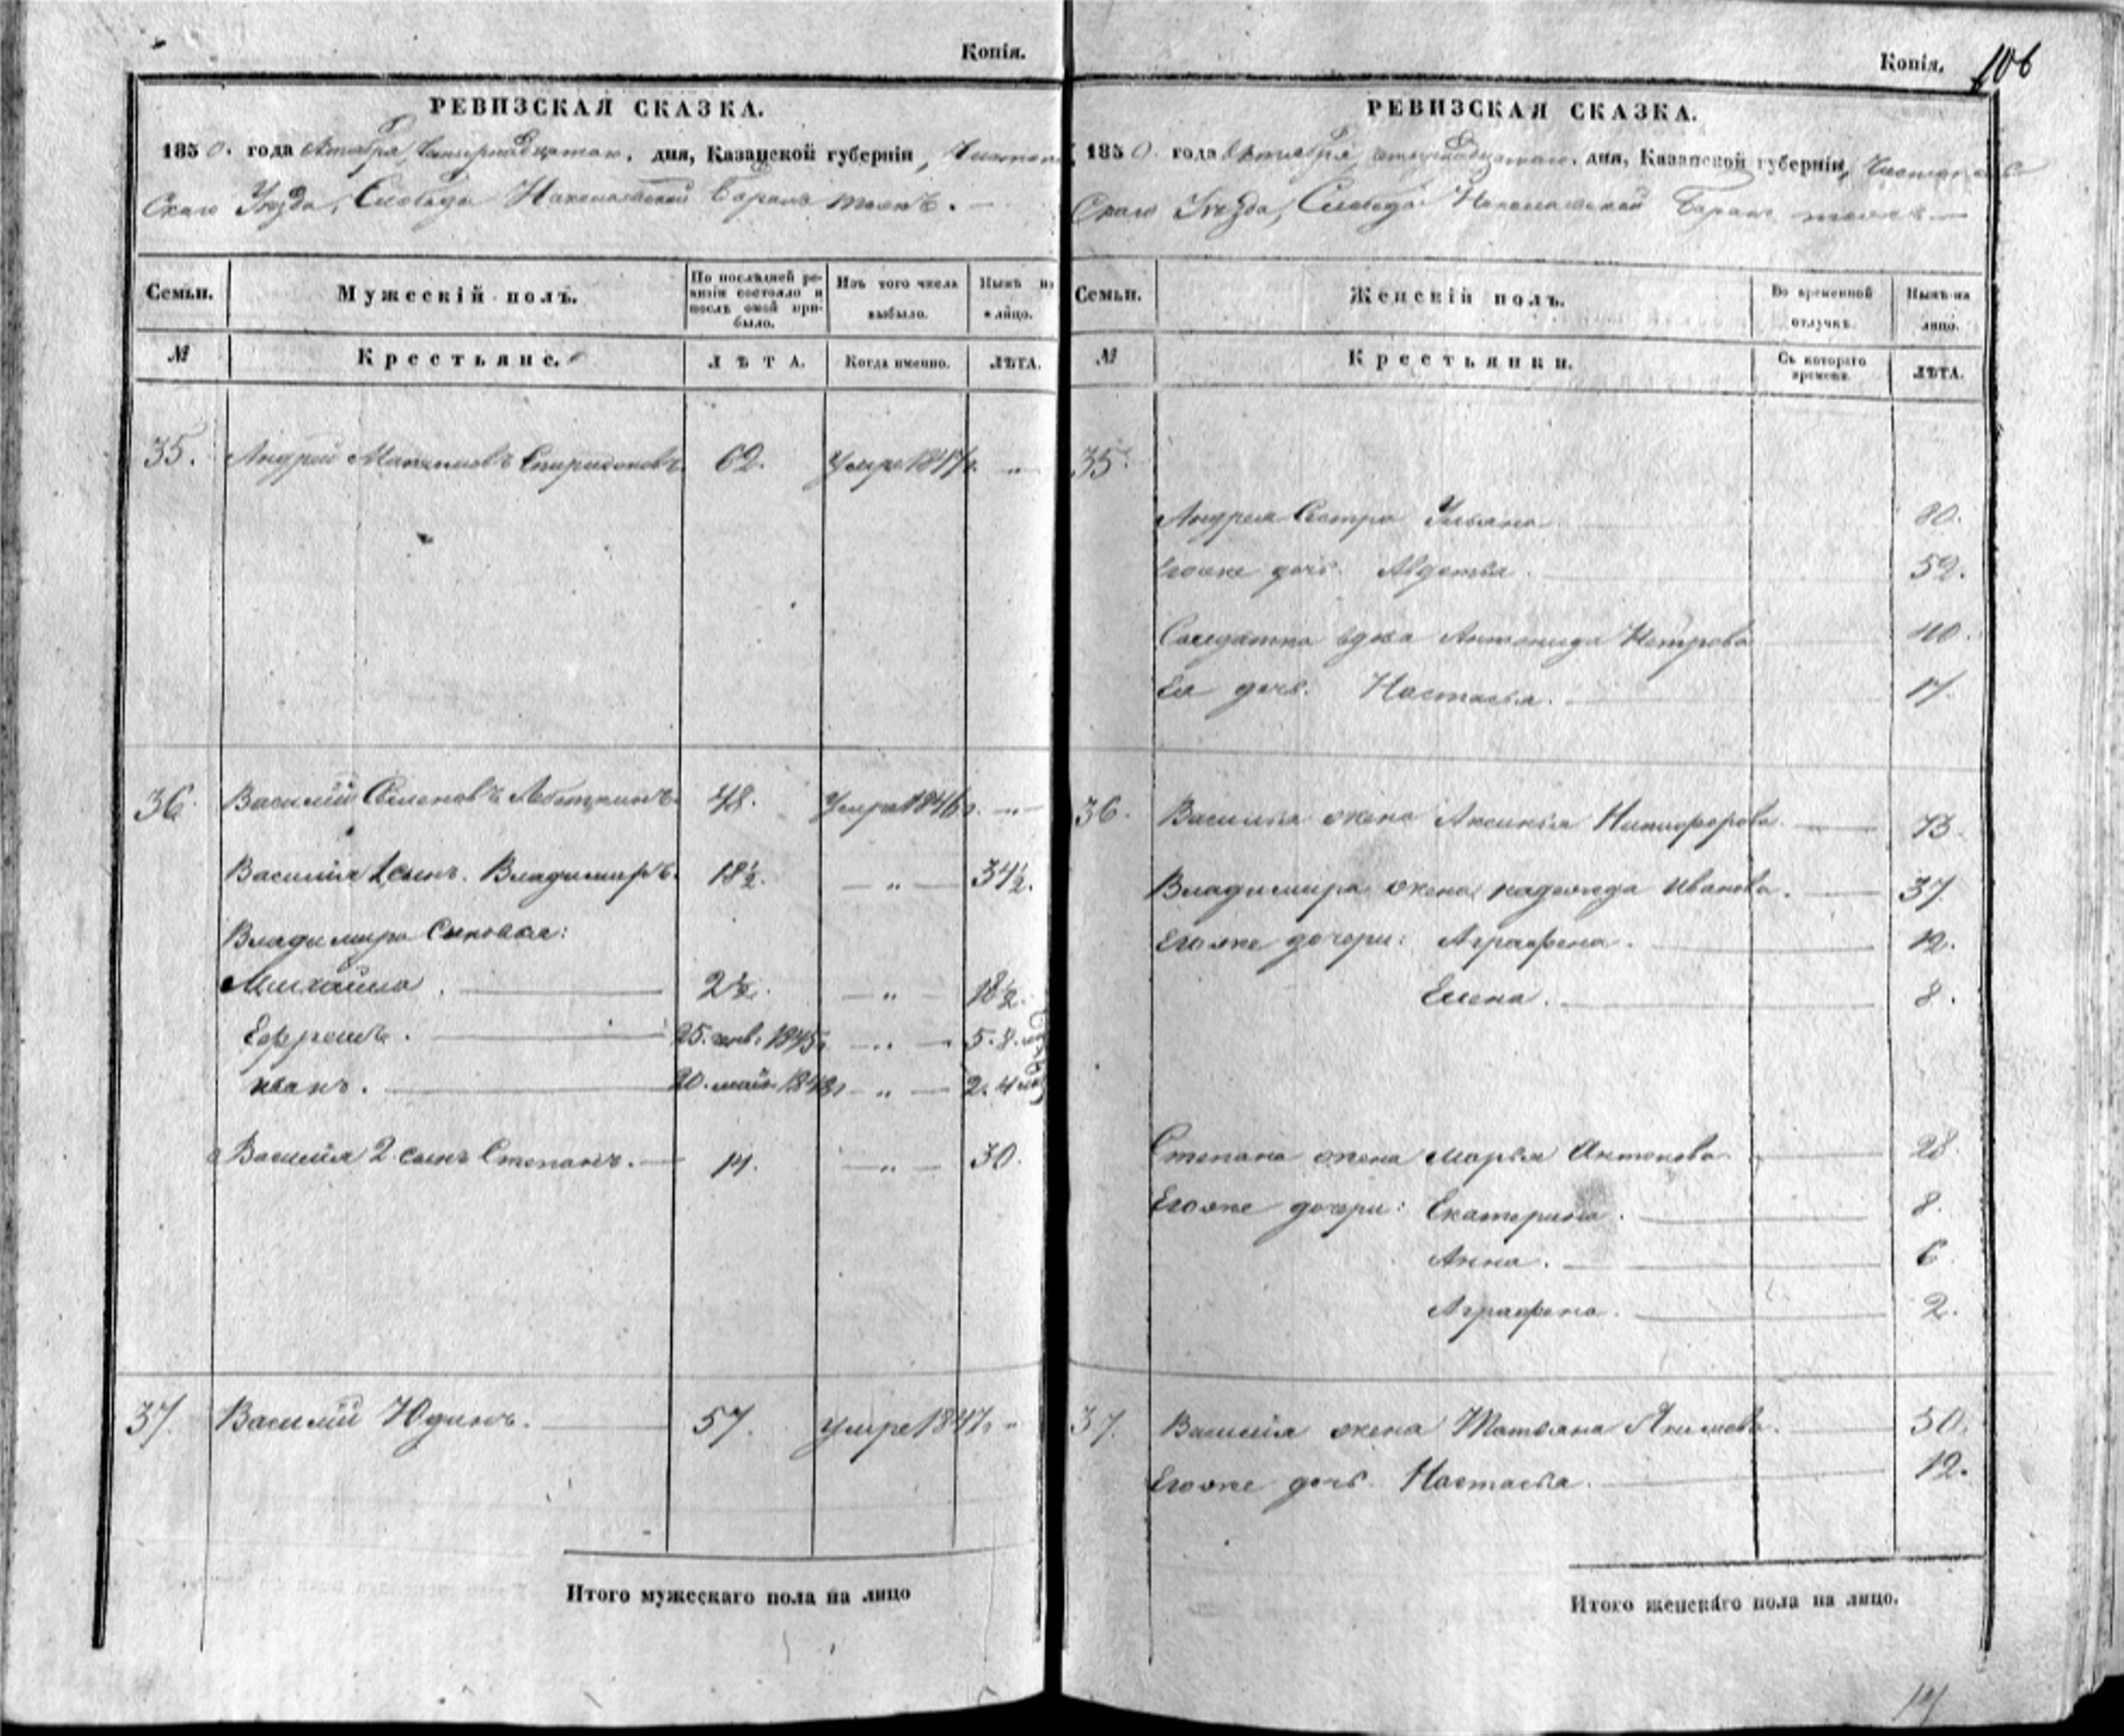 Копія.
РЕВИЗСКАЯ СКАЗКА.
1850. года Октября Четырнадцатаго. дня, Казанской губерніи, Чистополь
Скаго Уезда, Слободы Николаевской Баран тожъ.
Семьи.
Мужескій полъ.
По послѣдней ревизіи состояло и послѣ оной прибыло.
Изъ того числа выбыло.
Нынѣ на лицо.
№
Крестьяне.
ЛѢТА.
Когда именно.
ЛѢТА.
35. Андрей Максимовъ Спиридоновъ 62. Умре 1847 г. "
36. Василій Семеновъ 48. Умре 1846 г. "
Василія 1 сынъ. Владимиръ. 18½. " 34½.
Владимира Сыновья:
Михайло. 2½. " 18½.
Ефремъ. 25. янв. 1845 г. " 5. 8. мес
иванъ. 20. май 1848 г. " 2. 4 мес
Василія 2. сынъ Степанъ. 14. " 30.
37. Василій Юдинъ. 57. умре 1847 г. "
Итого мужескаго пола на лицо
Копія.
106
РЕВИЗСКАЯ СКАЗКА.
1850. года Октября четырнадцатаго. дня, Казанской губерніи, Чистопольс
Скаго Уезда, Слободы Николаевской Баран тожъ
Семьи.
Женскій полъ.
Во временной отлучкѣ.
Нынѣ на лицо.
№
Крестьянки.
Съ котораго времени.
ЛѢТА.
35.
Андрея Сестра Ульяна 80.
Егоже дочь. Авдотья. 52.
Солдатка вдова Антонида Петрова 40.
Ея дочь. Настасья. 17.
36. Василья жена Аксинья Никифорова. 73.
Владимира жена надежда иванова. 37
Егоже дочери: Аграфена. 12.
Елена. 8.
Степана жена марья Антонова. 28.
Егоже дочери: Екатерина. 8.
Анна. 6
Аграфена. 2.
37. Василія жена Татьяна Якимова. 50.
Егоже дочь. Настасья. 12.
Итого женскаго пола на лицо.